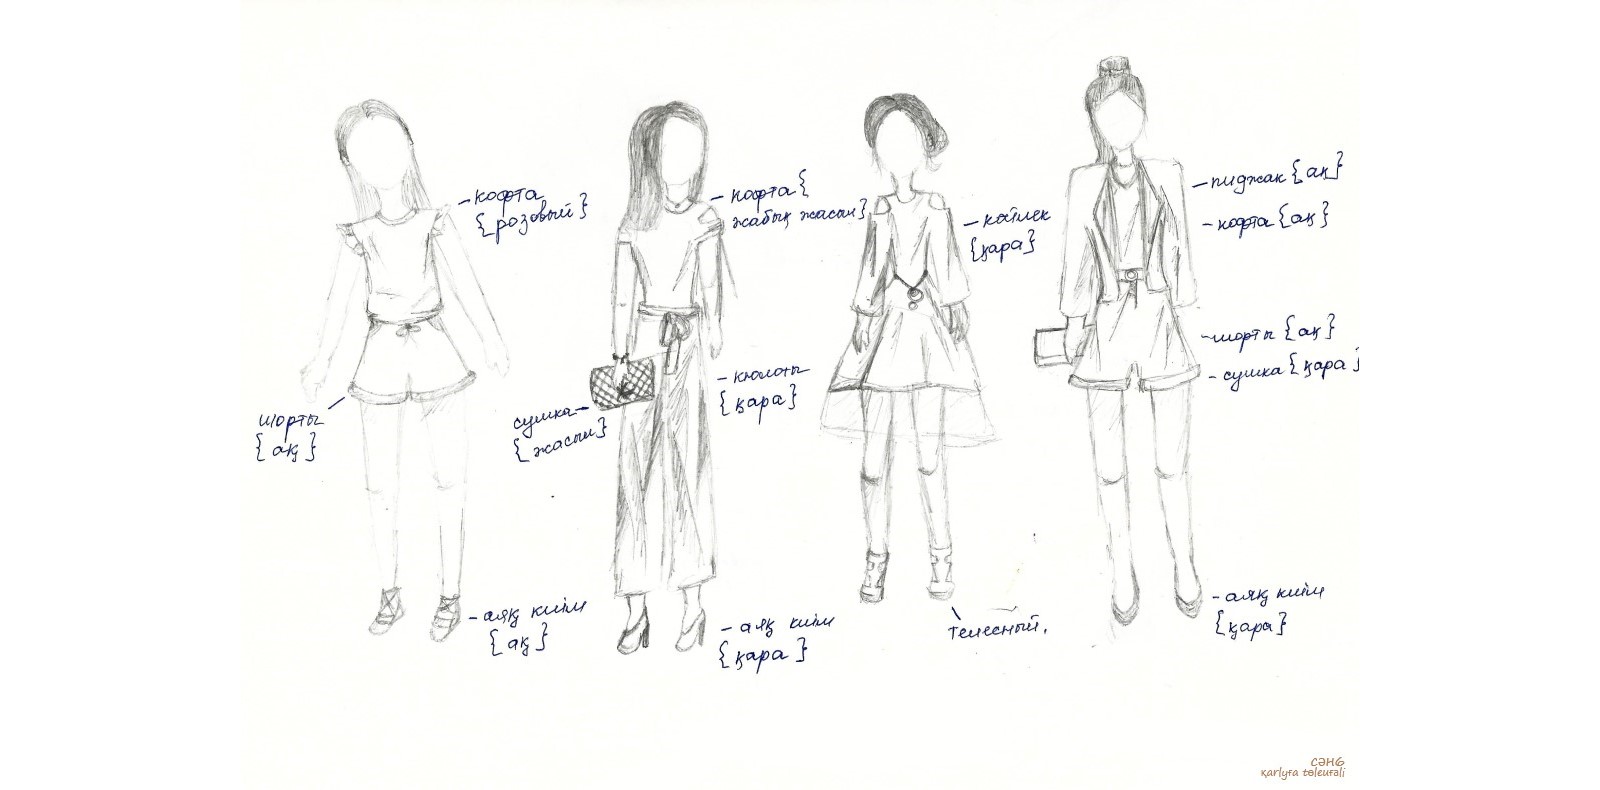 - кофта
{розовый}
шорты
{ақ}
- аяқ киім
{ақ}
- кофта {
жабық жасыл}
сушка -
{жасыл}
- кюлоты
{қара}
- аяқ киім
{қара}
- көйлек
{қара}
телесный.
- пиджак {ақ}
- кофта {ақ}
- шорты {ақ}
- сушка {қара}
- аяқ киім
{қара}
СӘНб
қarlyғa tөleuғali